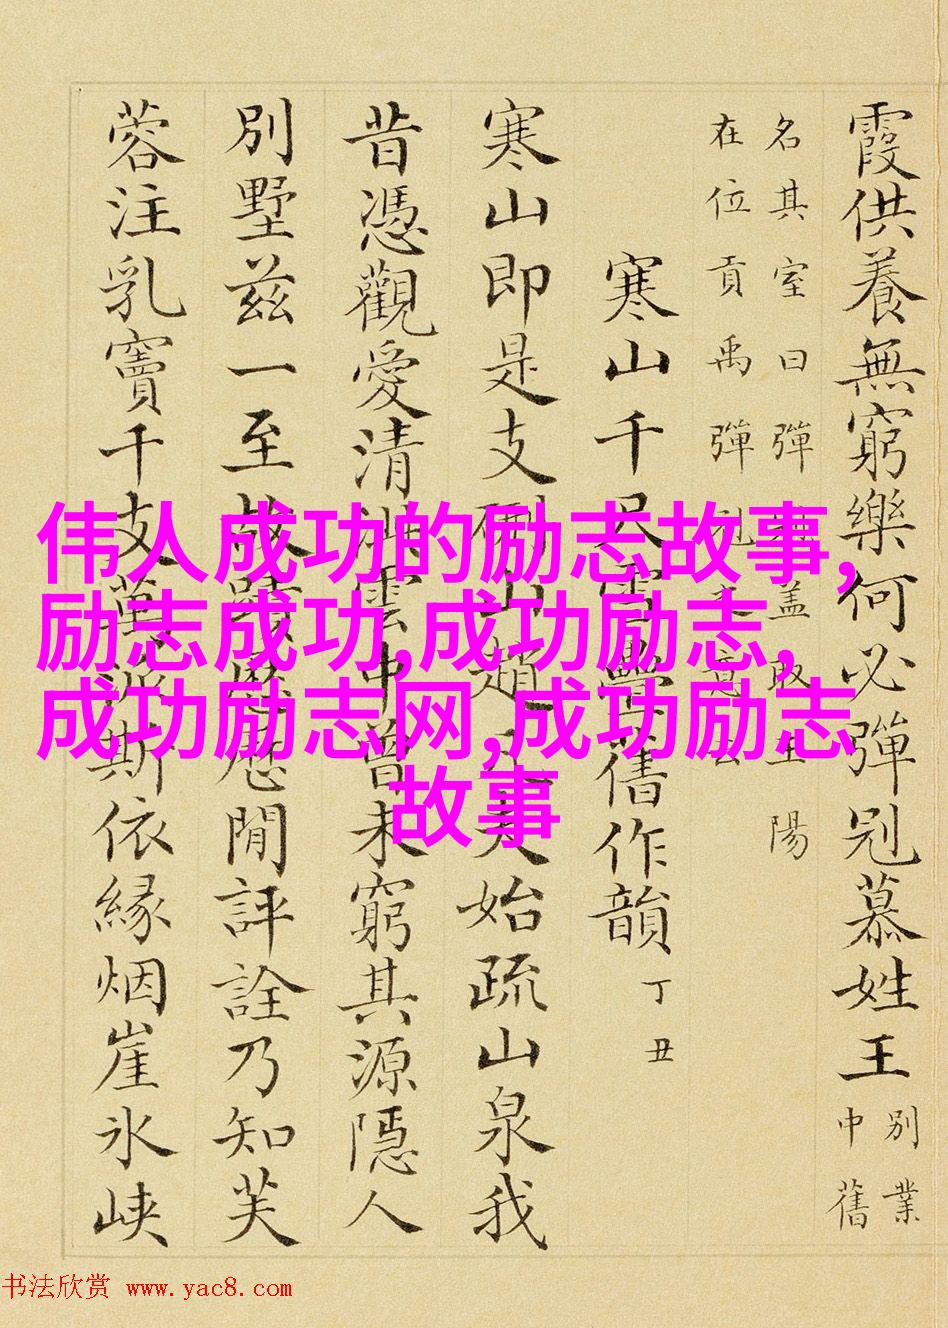 霞供養無窮樂何必彈冠慕姓王
別業
中舊
名其室曰彈冠蓋取王陽
在位貢禹彈冠意
寒山千尺雪疊舊作韻 丁丑
寒山即是支硎山趙夫始疏山泉我
昔憑觀愛清雲中曾未窮其源隱人
別墅茲一至故蹟歷歷閒評詮乃知芙
蓉注乳竇千支萬派斯依緣烟崖氷峽
伟人成功的励志故事,
励志成功,成功励志,
成功励志网,成功励志
故事
书法欣赏 www.yac8.com